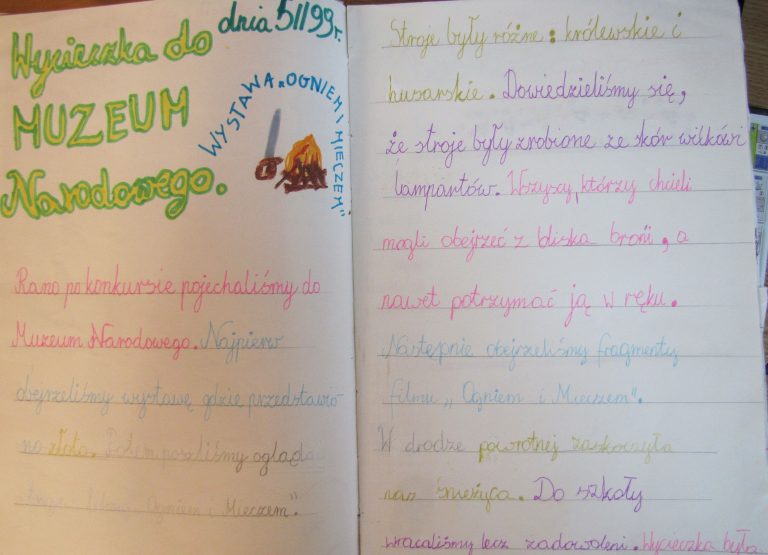 Wycieczka do
MUZEUM
Narodowego.
dnia 5II99r.
WYSTAWA „OGNIEM I MIECZEM"
Rano po konkursie pojechaliśmy do
Muzeum Narodowego. Najpierw
obejrzeliśmy wystawę gdzie przedstawio-
no złoto. Potem poszliśmy oglądać
stroje filmu „Ogniem i Mieczem".
Stroje były różne: królewskie i
husarskie. Dowiedzieliśmy się,
że stroje były zrobione ze skór wilków i
lampartów. Wszyscy, którzy chcieli
mogli obejrzeć z bliska broń, a
nawet potrzymać ją w ręku.
Następnie obejrzeliśmy fragmenty
filmu „Ogniem i Mieczem".
W drodze powrotnej zaskoczyła
nas śnieżyca. Do szkoły
wracaliśmy lecz zadowoleni. Wycieczka była